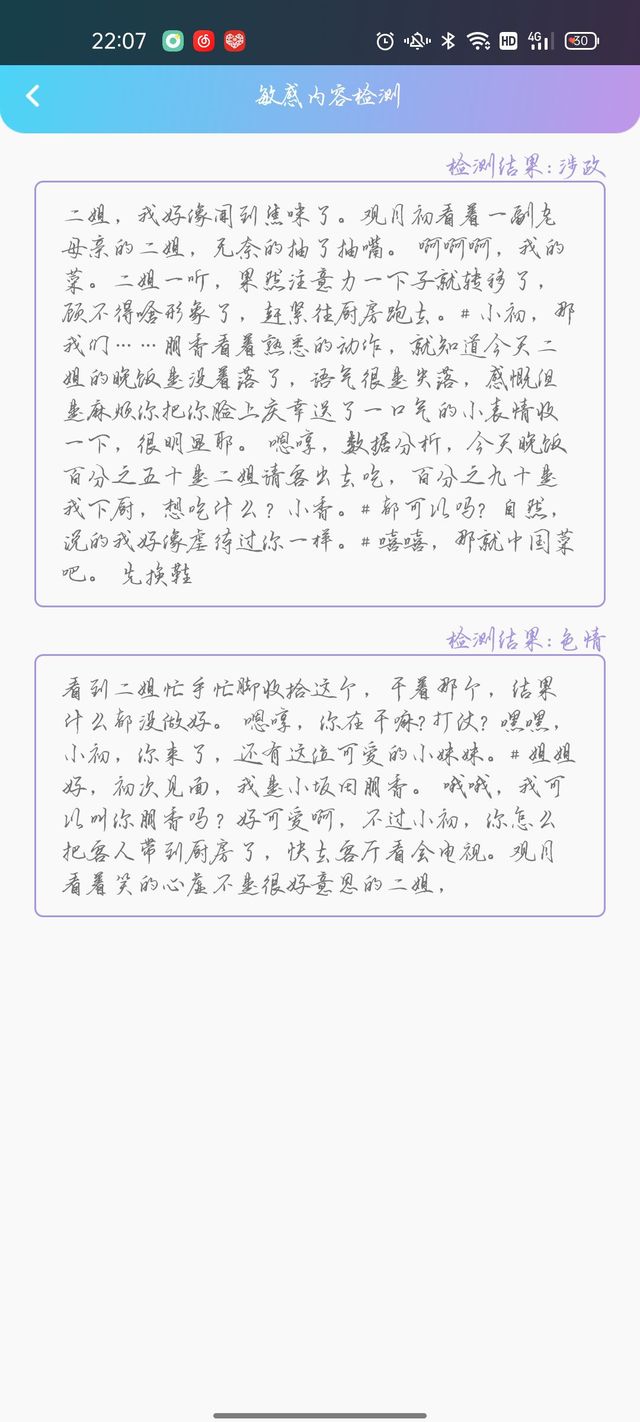 22:07
HD
4G
30
敏感内容检测
检测结果:涉政
二姐，我好像闻到焦味了。观月初看着一副老
母亲的二姐，无奈的抽了抽嘴。 啊啊啊，我的
菜。二姐一听，果然注意力一下子就转移了，
顾不得啥形象了，赶紧往厨房跑去。#小初，那
我们……朋香看着熟悉的动作，就知道今天二
姐的晚饭是没着落了，语气很是失落，感慨但
是麻烦你把你脸上庆幸送了一口气的小表情收
一下，很明显耶。 嗯哼，数据分析，今天晚饭
百分之五十是二姐请客出去吃，百分之九十是
我下厨，想吃什么？小香。#都可以吗？自然，
说的我好像虐待过你一样。#嘻嘻，那就中国菜
吧。 先换鞋
检测结果:色情
看到二姐忙手忙脚收拾这个，干着那个，结果
什么都没做好。 嗯哼，你在干嘛？打仗？嘿嘿，
小初，你来了，还有这位可爱的小妹妹。#姐姐
好，初次见面，我是小坂田朋香。 哦哦，我可
以叫你朋香吗？好可爱啊，不过小初，你怎么
把客人带到厨房了，快去客厅看会电视。观月
看着笑的心虚不是很好意思的二姐，